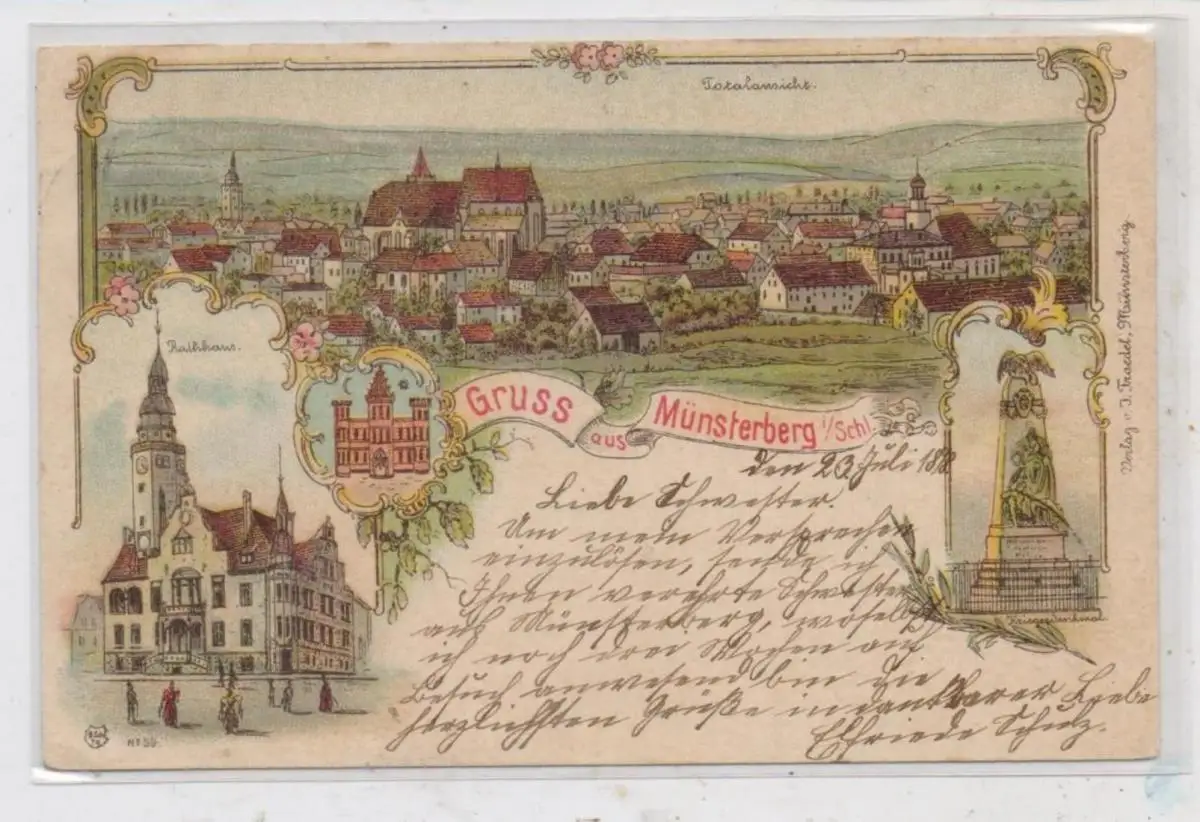 Totalansicht.
Rathhaus.
Gruss
aus
Münsterberg i/Schl.
Kriegerdenkmal.
Verlag v. J. Traedel, Münsterberg.
No 56
den 23 Juli 18
Liebe Schwester.
Um mein Versprechen
einzulösen, sende ich
Ihnen verehrte Schwester
aus Münsterberg, woselbst
ich noch drei Wochen auf
Besuch anwesend bin die
herzlichsten Grüße in dankbarer Liebe
Elfriede Schulz.